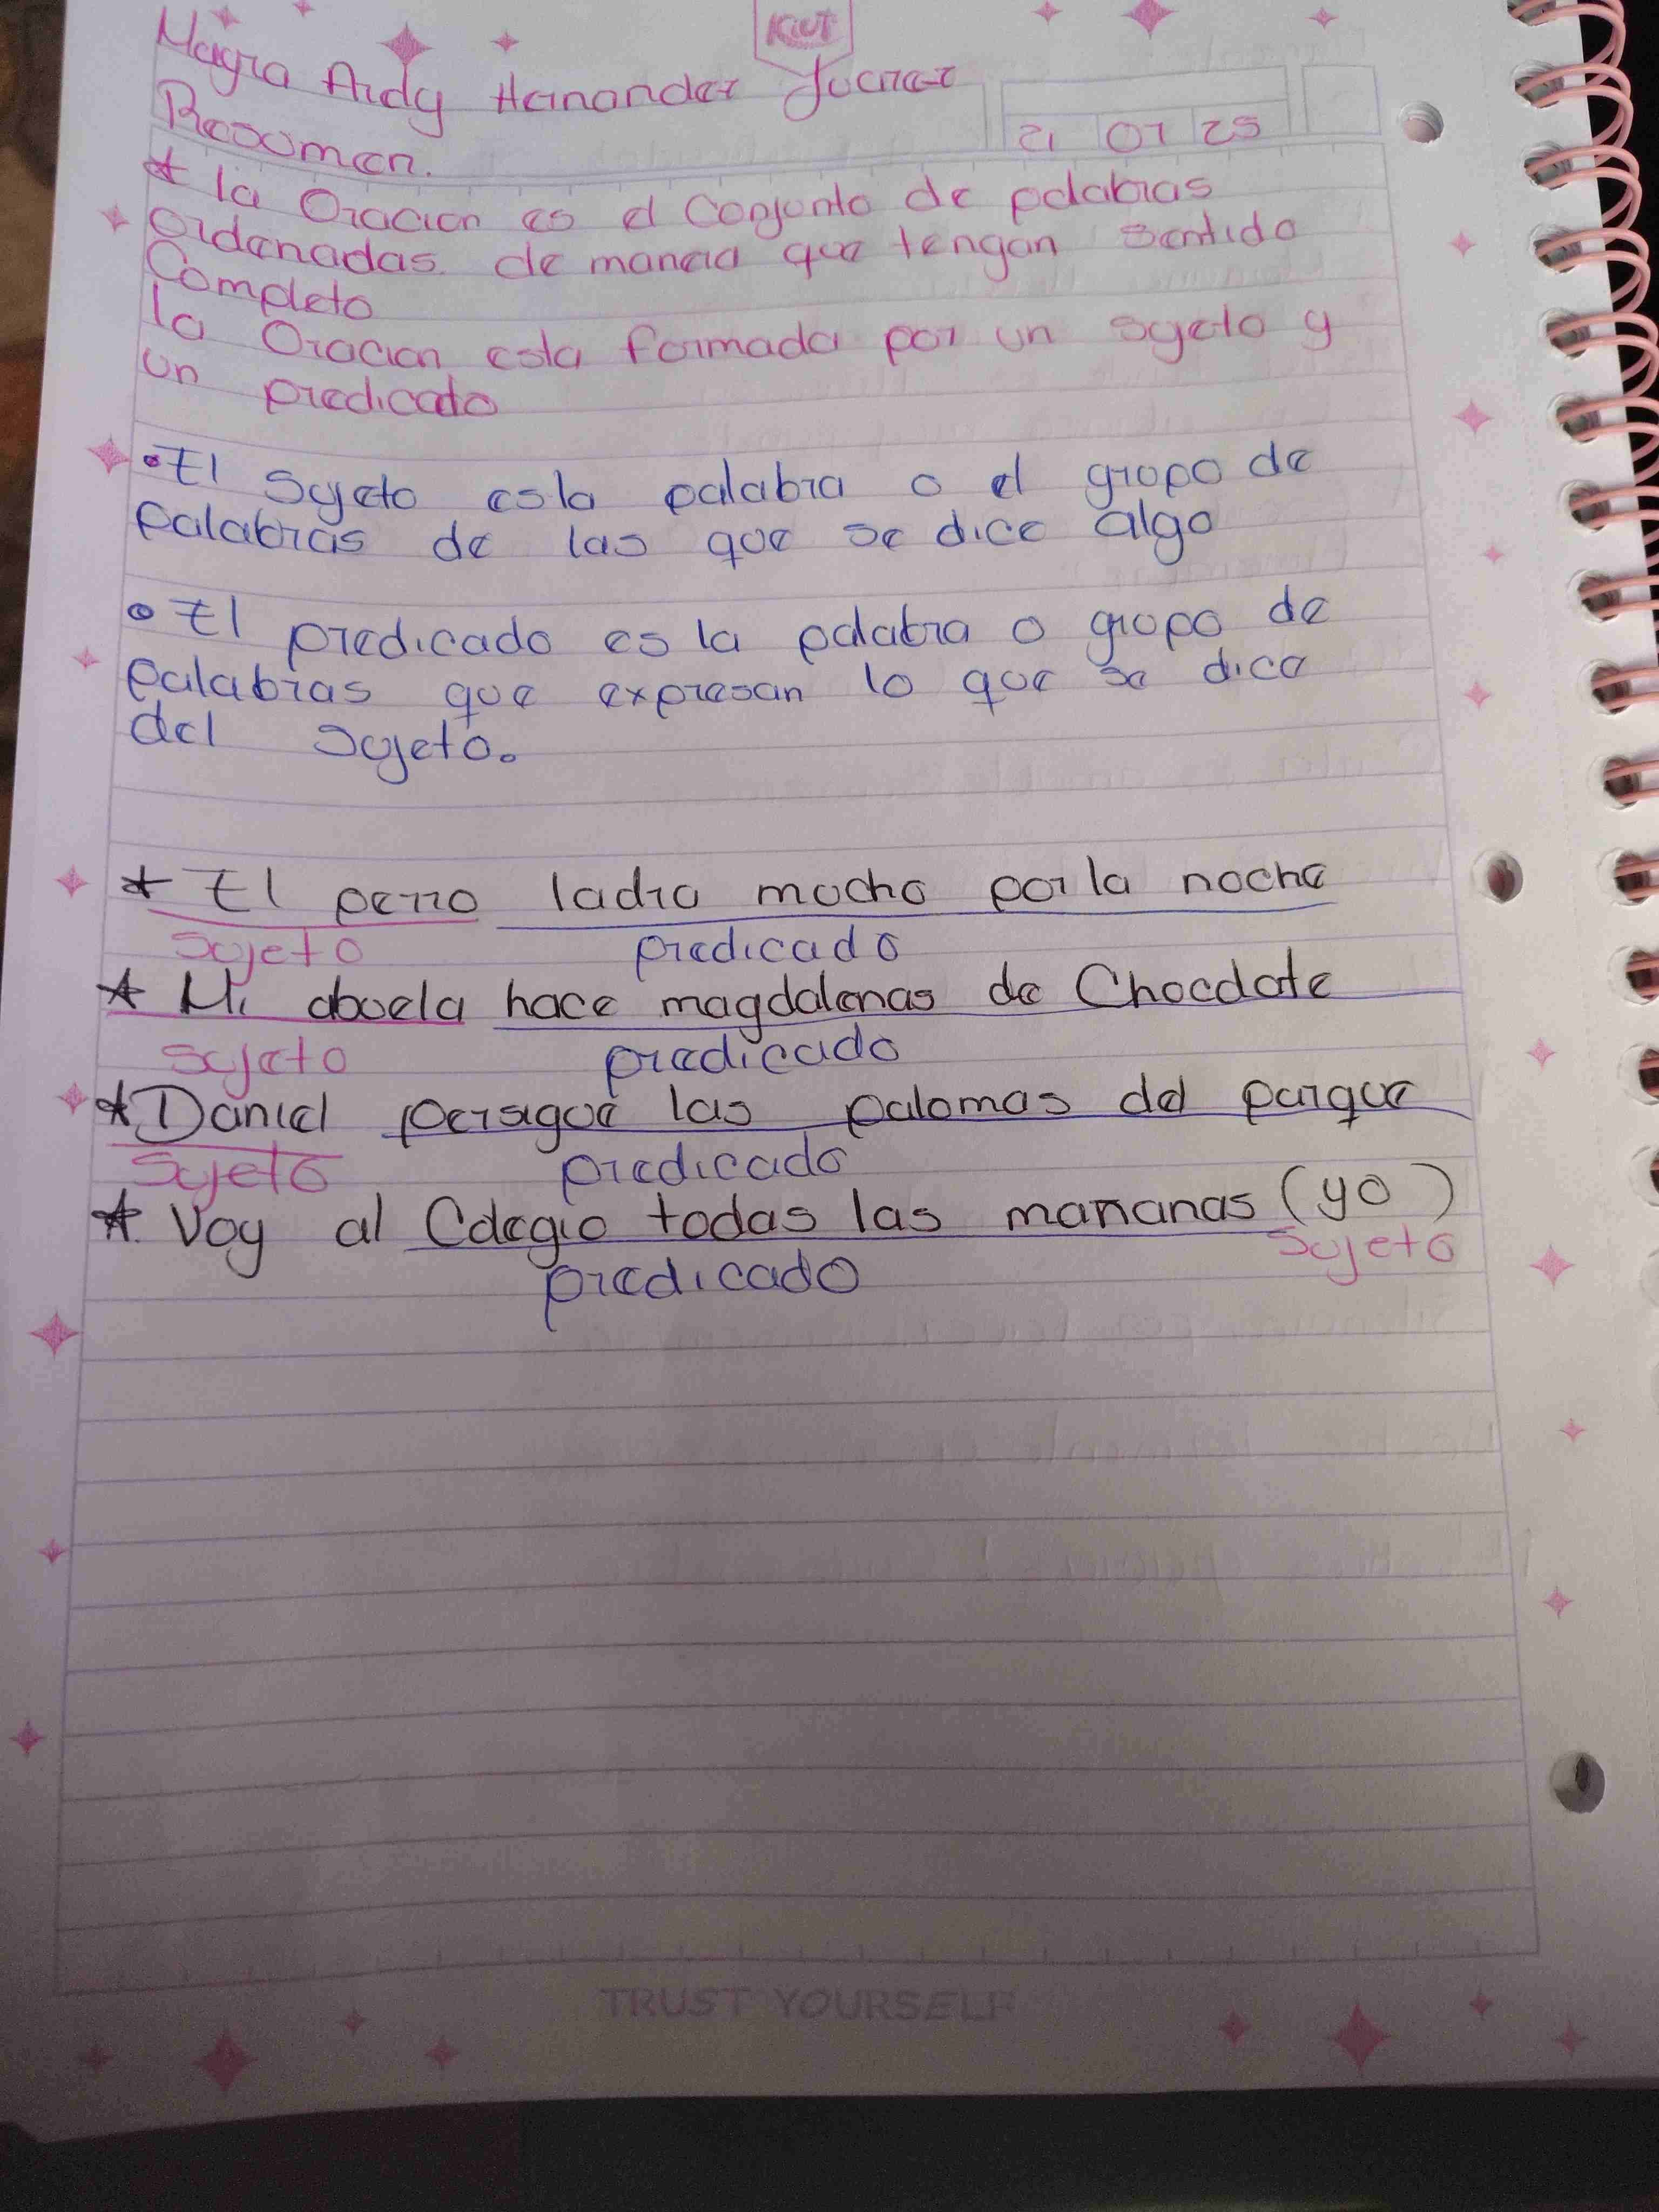 Kiut
Mayra Arely Hernandez Juarez
21 07 25
Resumen.
* la Oracion es el Conjunto de palabras
ordenadas de manera que tengan sentido
Completo
la Oracion esta formada por un sujeto y
un predicado
• El sujeto es la palabra o el grupo de
palabras de las que se dice algo
• El predicado es la palabra o grupo de
palabras que expresan lo que se dice
del sujeto.
* El perro ladra mucho por la noche
sujeto predicado
* Mi abuela hace magdalenas de Chocolate
sujeto predicado
* Daniel persigue las palomas del parque
sujeto predicado
* Voy al Colegio todas las mañanas (yo)
predicado sujeto
TRUST YOURSELF